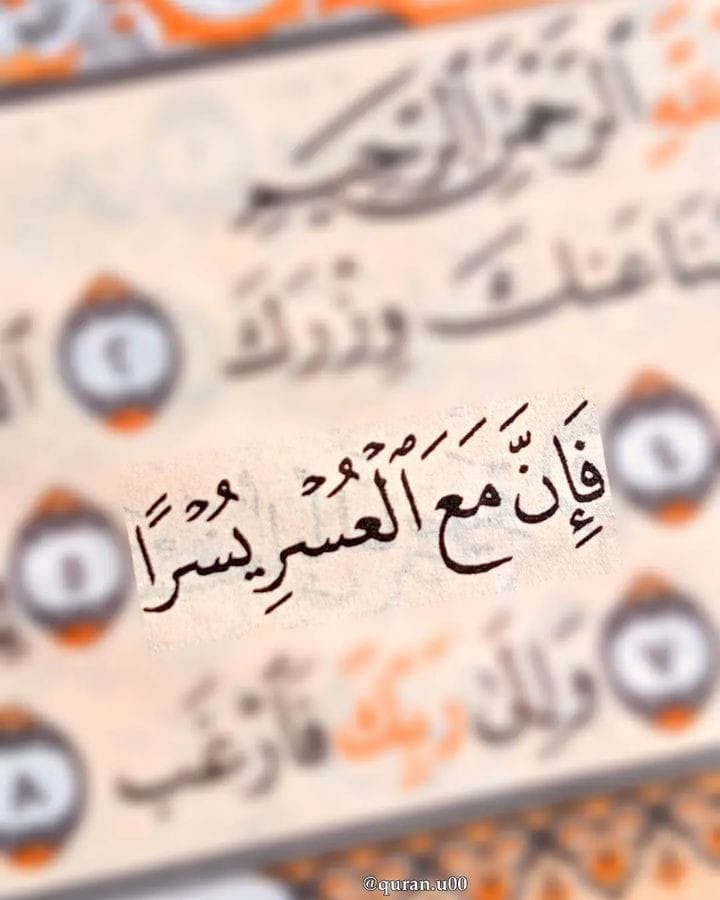 ٱلرَّحْمَٰنِ ٱلرَّحِيمِ
عَنكَ وِزْرَكَ ٢
فَإِنَّ مَعَ ٱلْعُسْرِ يُسْرًا ٥
٧ وَإِلَىٰ رَبِّكَ فَٱرْغَب ٨
@quran.u00